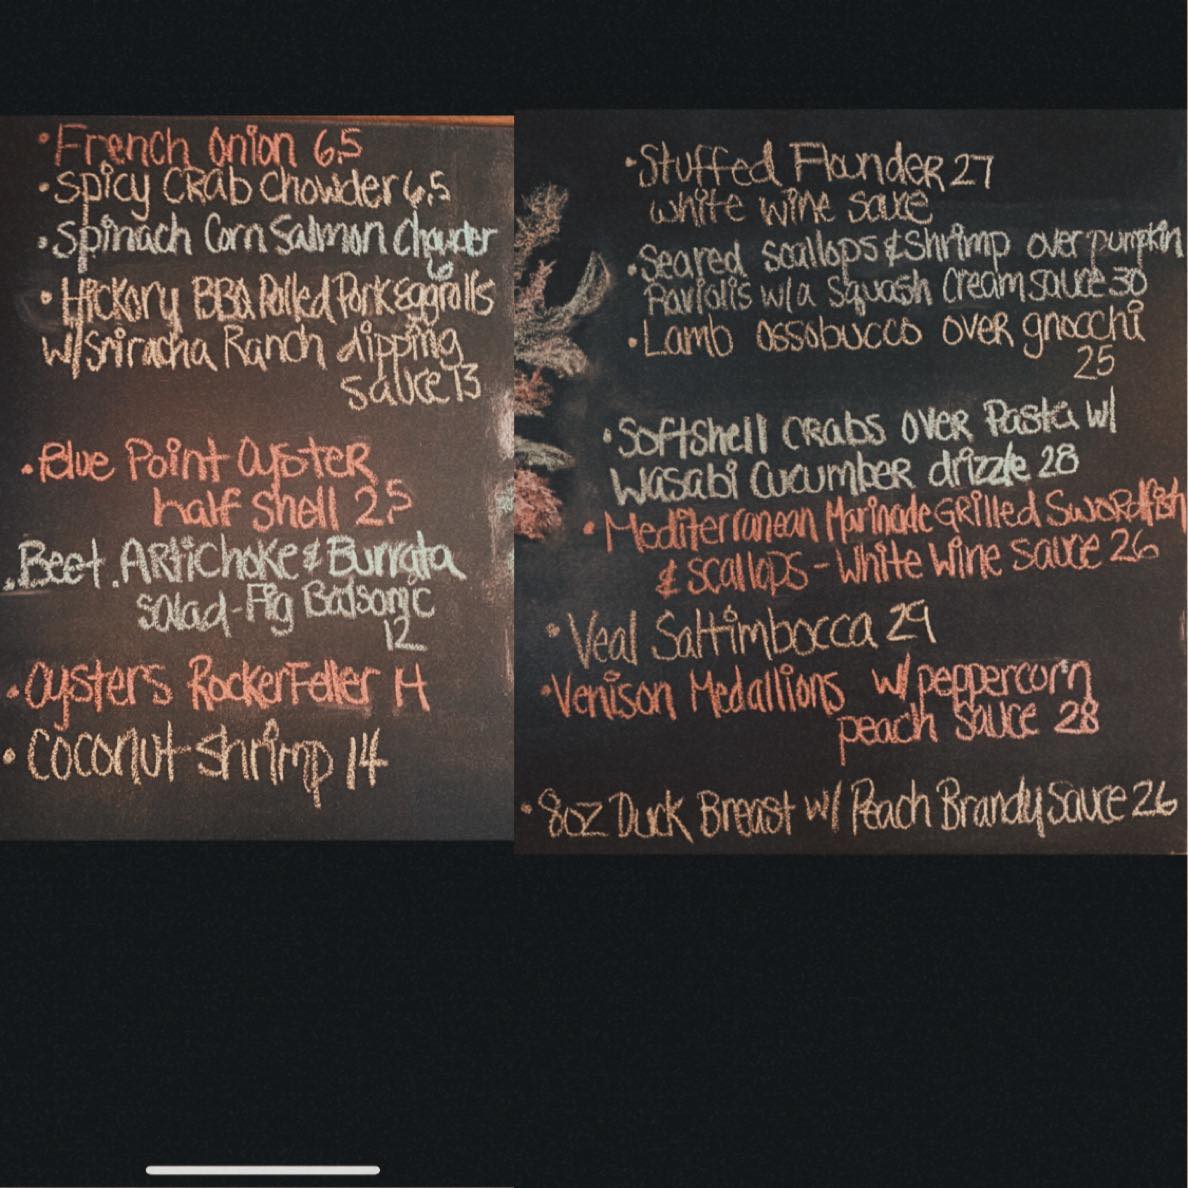 • French Onion 6.5
• Spicy Crab Chowder 6.5
• Spinach Corn Salmon Chowder
6
• Hickory BBQ Pulled Pork Eggrolls
w/Sriracha Ranch dipping
sauce 13
• Blue Point Oyster
half shell 2.5
• Beet. Artichoke & Burrata
salad-Fig Balsomic
12
• Oysters Rockerfeller 14
• Coconut Shrimp 14
• Stuffed Flounder 27
white wine sauce
• Seared scallops & Shrimp over pumpkin
Raviolis w/a Squash Cream sauce 30
• Lamb ossobucco over gnocchi
25
• Softshell crabs over Pasta w/
Wasabi Cucumber drizzle 28
• Mediterranean Marinade Grilled Swordfish
& scallops - White Wine Sauce 26
• Veal Saltimbocca 29
• Venison Medallions w/peppercorn
peach sauce 28
• 8oz Duck Breast w/ Peach Brandy Sauce 26